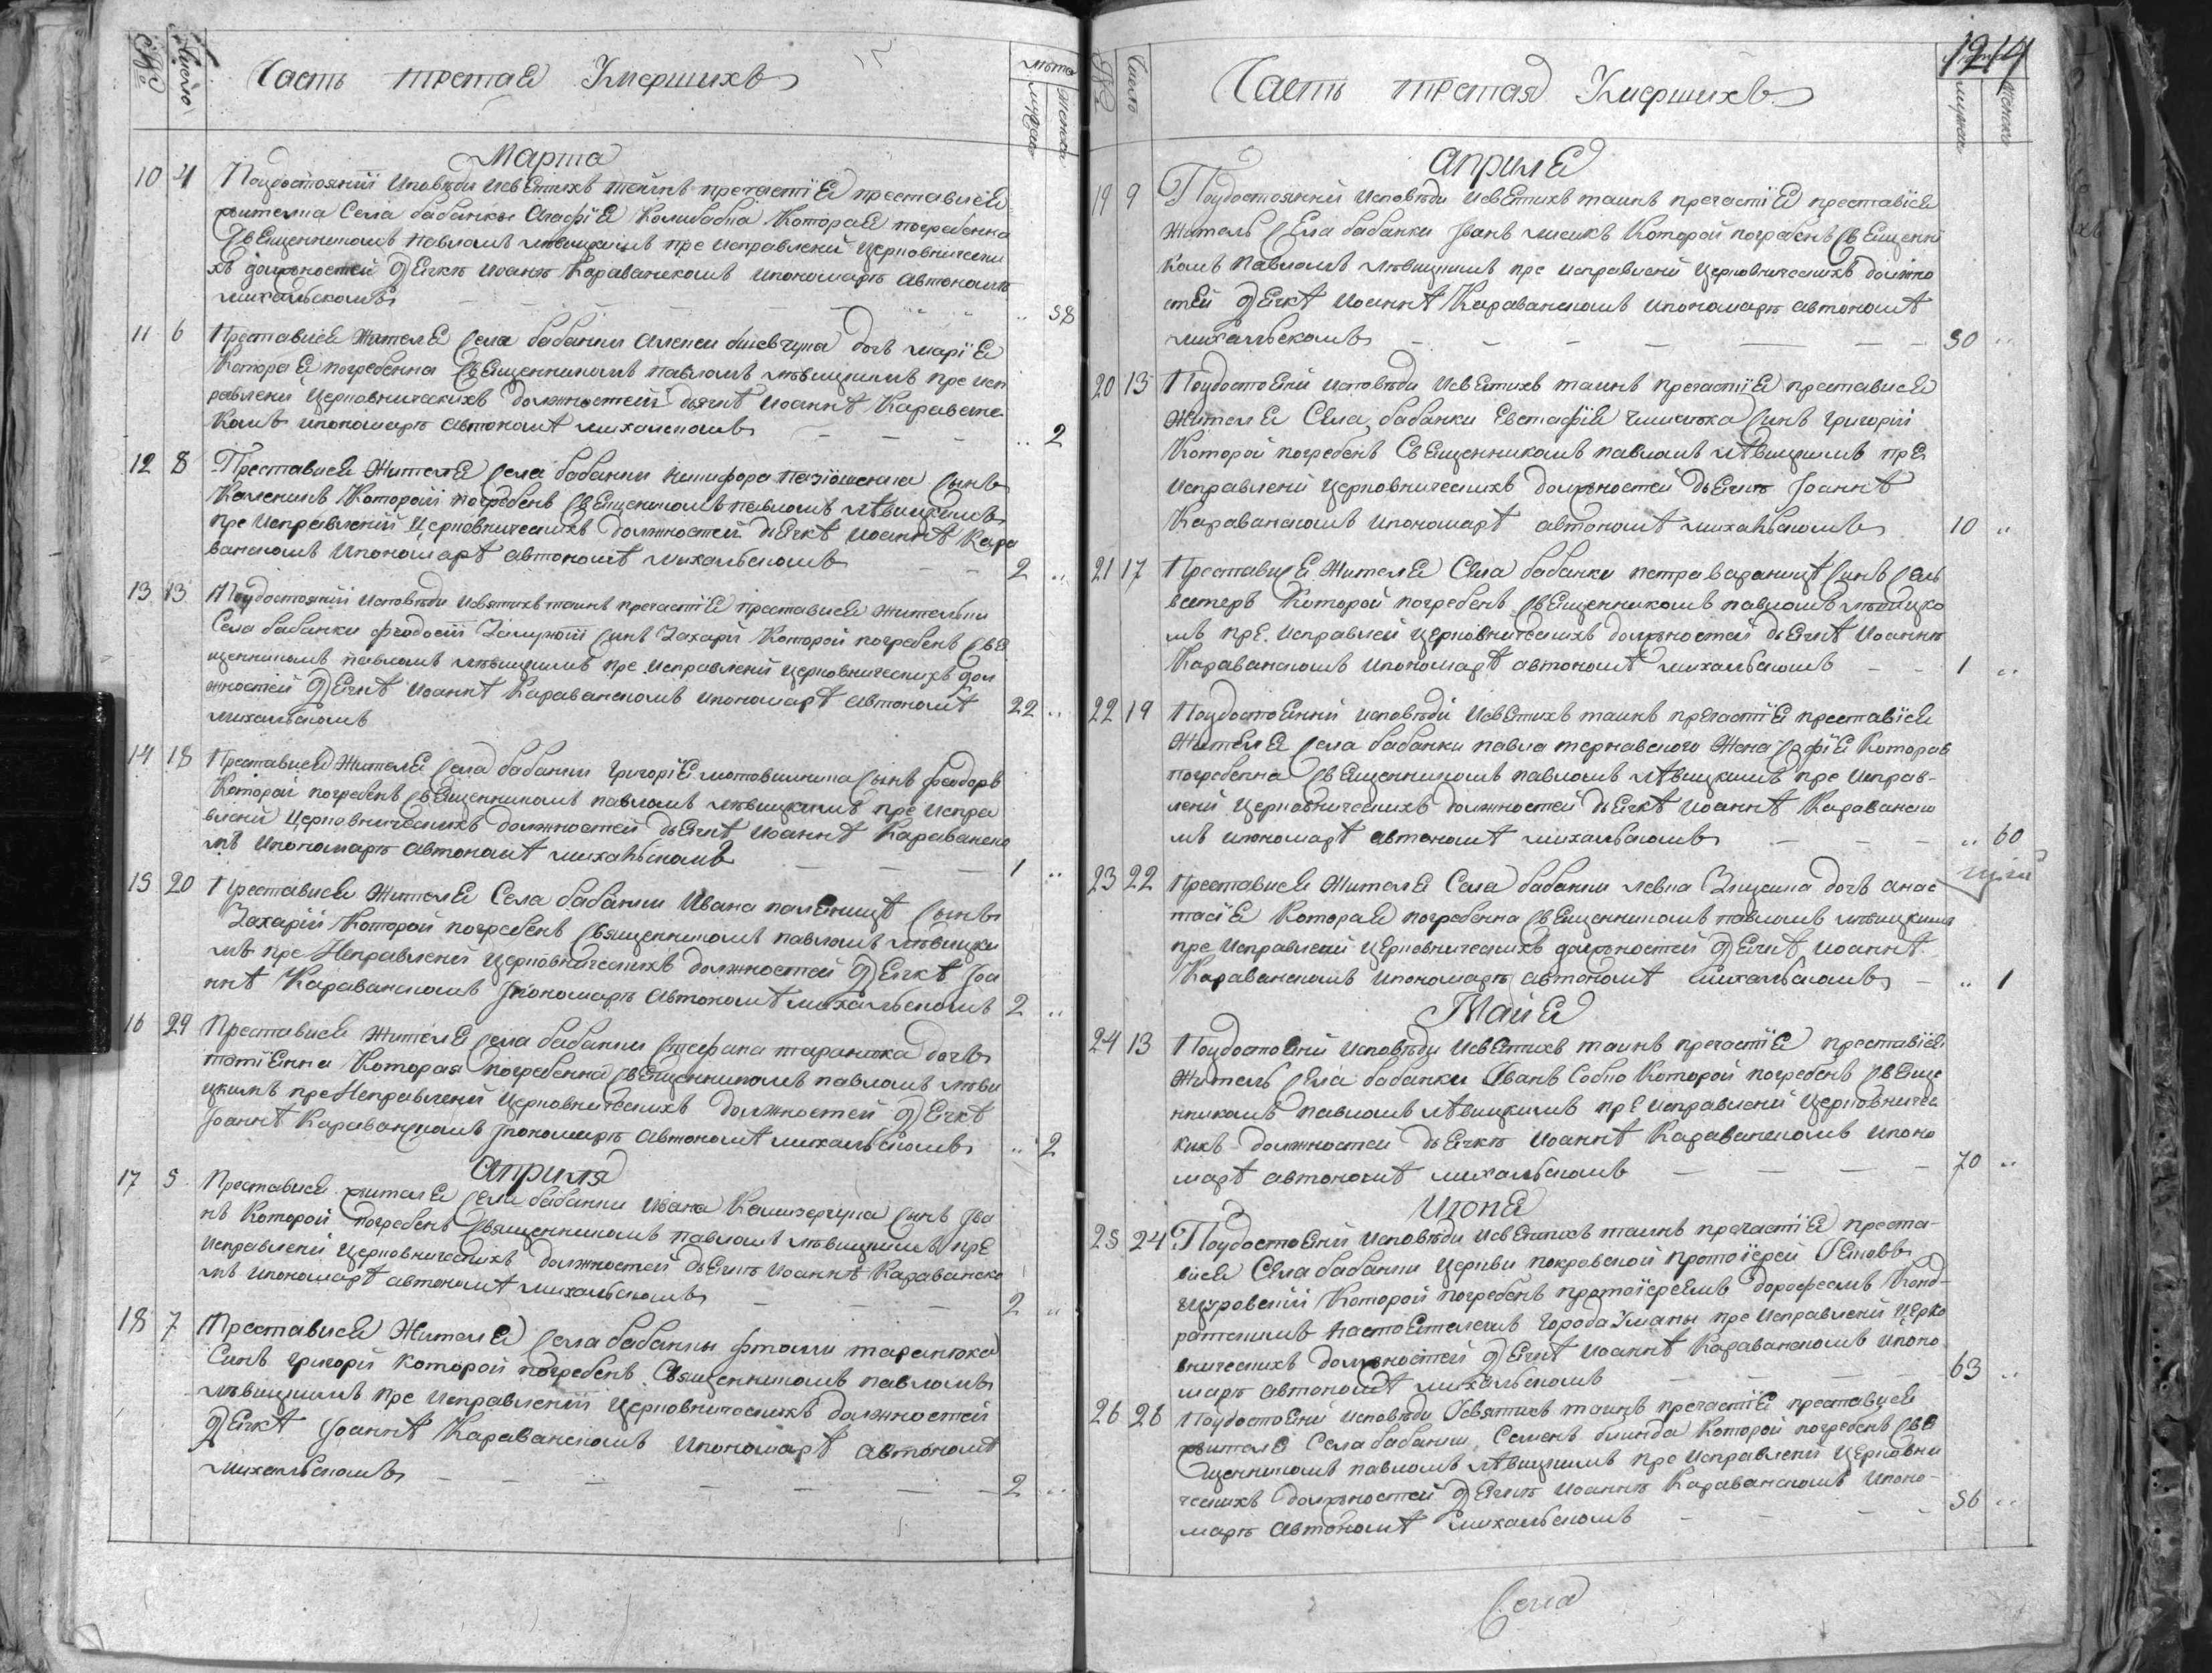 Часть третая Умершихъ
Число
лѣта
мужеск
женска
Марта
10 4 Поудостоянїи Исповѣди Исвятихъ таинъ причастїя преставися
жителка Села бабанки Агафїя Колибабка Которая погребенна
Священникомъ павломъ лѣвицкимъ пре исправленїи Церковнически
хъ должностей Дячкѣ иоаннѣ Караванскомъ ипономарѣ автономѣ
михальскомъ „ 58
11 6 Преставися жителя села бабанки дочъ марїя
Которая погребенна Священникомъ павломъ лѣвицкимъ пре исп
равленїи Церковническихъ должностей дячкѣ иоаннѣ Караванс
комъ ипономарѣ автономѣ михальскомъ „ 2
12 8 Преставися Жителя села бабанки никифора сынъ
Каленикъ Которой погребенъ священникомъ павломъ лѣвицкимъ
пре исправленїи Церковническихъ должностей дячкѣ иоаннѣ Кара
ванскомъ ипономарѣ автономѣ михальскомъ 2 „
13 13 Поудостоянїи исповѣди исвятихъ таинъ причастїя преставися жительки
Села бабанки феодосїи синъ Захарїй Которой погребенъ свя
щенникомъ павломъ лѣвицкимъ пре исправленїи Церковническихъ дол
жностей Дячкѣ иоаннѣ Караванскомъ ипономарѣ автономѣ
михальскомъ 22 „
14 18 Преставися Жителя села бабанки григорїя сынъ феодоръ
Которой погребенъ священникомъ павломъ лѣвицкимъ пре испра
вленїи Церковническихъ должностей дячкѣ иоаннѣ Караванско
мъ ипономарѣ автономѣ михальскомъ 1 „
15 20 Преставися жителя Села бабанки Ивана паленицѣ сынъ
Захарїй Которой погребенъ священникомъ павломъ лѣвицки
мъ пре исправленїи Церковническихъ должностей Дячкѣ Іоа
ннѣ Караванскомъ Іпономарѣ автономѣ михальскомъ 2 „
16 29 Преставися жителя села бабанки стефана таранюка дочъ
татїянна Которая погребенна священникомъ павломъ лѣви
цкимъ пре исправленїи Церковническихъ должностей Дячкѣ
Іоаннѣ Караванскомъ Іпономарѣ автономѣ михальскомъ „ 2
Априля
17 5 Преставися жителя села бабанки ивана сынъ Іва
нъ Которой погребенъ священникомъ павломъ лѣвицкимъ пре
исправленїи Церковническихъ должностей дячкѣ иоаннѣ Караванско
мъ ипономарѣ автономѣ михальскомъ 2 „
18 7 Преставися Жителя села бабанки фтоми таранюка
Синъ григорїй Которой погребенъ Священникомъ павломъ
лѣвицкимъ пре исправленїи Церковническихъ должностей
Дячкѣ Іоаннѣ Караванскомъ ипономарѣ автономѣ
михальскомъ 2 „
Часть третая Умершихъ
Число
1214
мужеск
женска
априля
19 9 Поудостоянїи исповѣди исвятихъ таинъ причастїя преставися
житель села бабанки Іванъ Которой погребенъ священни
комъ павломъ лѣвицкимъ пре исправленїи Церковническихъ должно
стей Дячкѣ иоаннѣ Караванскомъ ипономарѣ автономѣ
михальскомъ 50 „
20 13 Поудостоянїи исповѣди исвятихъ таинъ причастїя преставися
жителя Села бабанки Евстафїя синъ григорїй
Которой погребенъ Священникомъ павломъ лѣвицкимъ пре
исправленїи Церковническихъ должностей дячкѣ Іоаннѣ
Караванскомъ ипономарѣ автономѣ михальскомъ 10 „
21 17 Преставися жителя Села бабанки петра синъ сель
вестеръ Которой погребенъ священникомъ павломъ лѣвицки
мъ пре исправленїи Церковническихъ должностей дячкѣ иоаннѣ
Караванскомъ ипономарѣ автономѣ михальскомъ 1 „
22 19 Поудостоянїи исповѣди исвятихъ таинъ причастїя преставися
жителя села бабанки павла тернавского жена софїя Которая
погребенна священникомъ павломъ лѣвицкимъ пре исправ-
ленїи Церковническихъ должностей дячкѣ иоаннѣ Караванско
мъ ипономарѣ автономѣ михальскомъ „ 60
23 22 Преставися жителя Села бабанки левка дочъ анас
тасїя Которая погребенна священникомъ павломъ лѣвицкимъ
пре исправленїи Церковническихъ должностей Дячкѣ иоаннѣ
Караванскомъ ипономарѣ автономѣ михальскомъ „ 1
Маия
24 13 Поудостоянїи исповѣди исвятихъ таинъ причастїя преставися
житель села бабанки Іванъ Собко Которой погребенъ священ
никомъ павломъ лѣвицкимъ пре исправленїи Церковничес
кихъ должностей дячкѣ иоаннѣ Караванскомъ ипоно
марѣ автономѣ михальскомъ 70 „
Июня
25 24 Поудостоянїи исповѣди исвятихъ таинъ причастїя преста-
вися Села бабанки Церкви покровской протоїерей
Которой погребенъ протоїереемъ дорофеемъ Конд-
ратскимъ настоятелемъ города Умани пре исправленїи Церко
вническихъ должностей Дячкѣ иоаннѣ Караванскомъ ипоно
марѣ автономѣ михальскомъ 63 „
26 28 Поудостоянїи исповѣди Ісвятихъ таинъ причастїя преставися
жителя Села бабанки Семенъ Которой погребенъ свя
щенникомъ павломъ лѣвицкимъ пре исправленїи Церковни
ческихъ должностей Дячкѣ иоаннѣ Караванскомъ ипоно-
марѣ автономѣ михальскомъ 56 „
Села